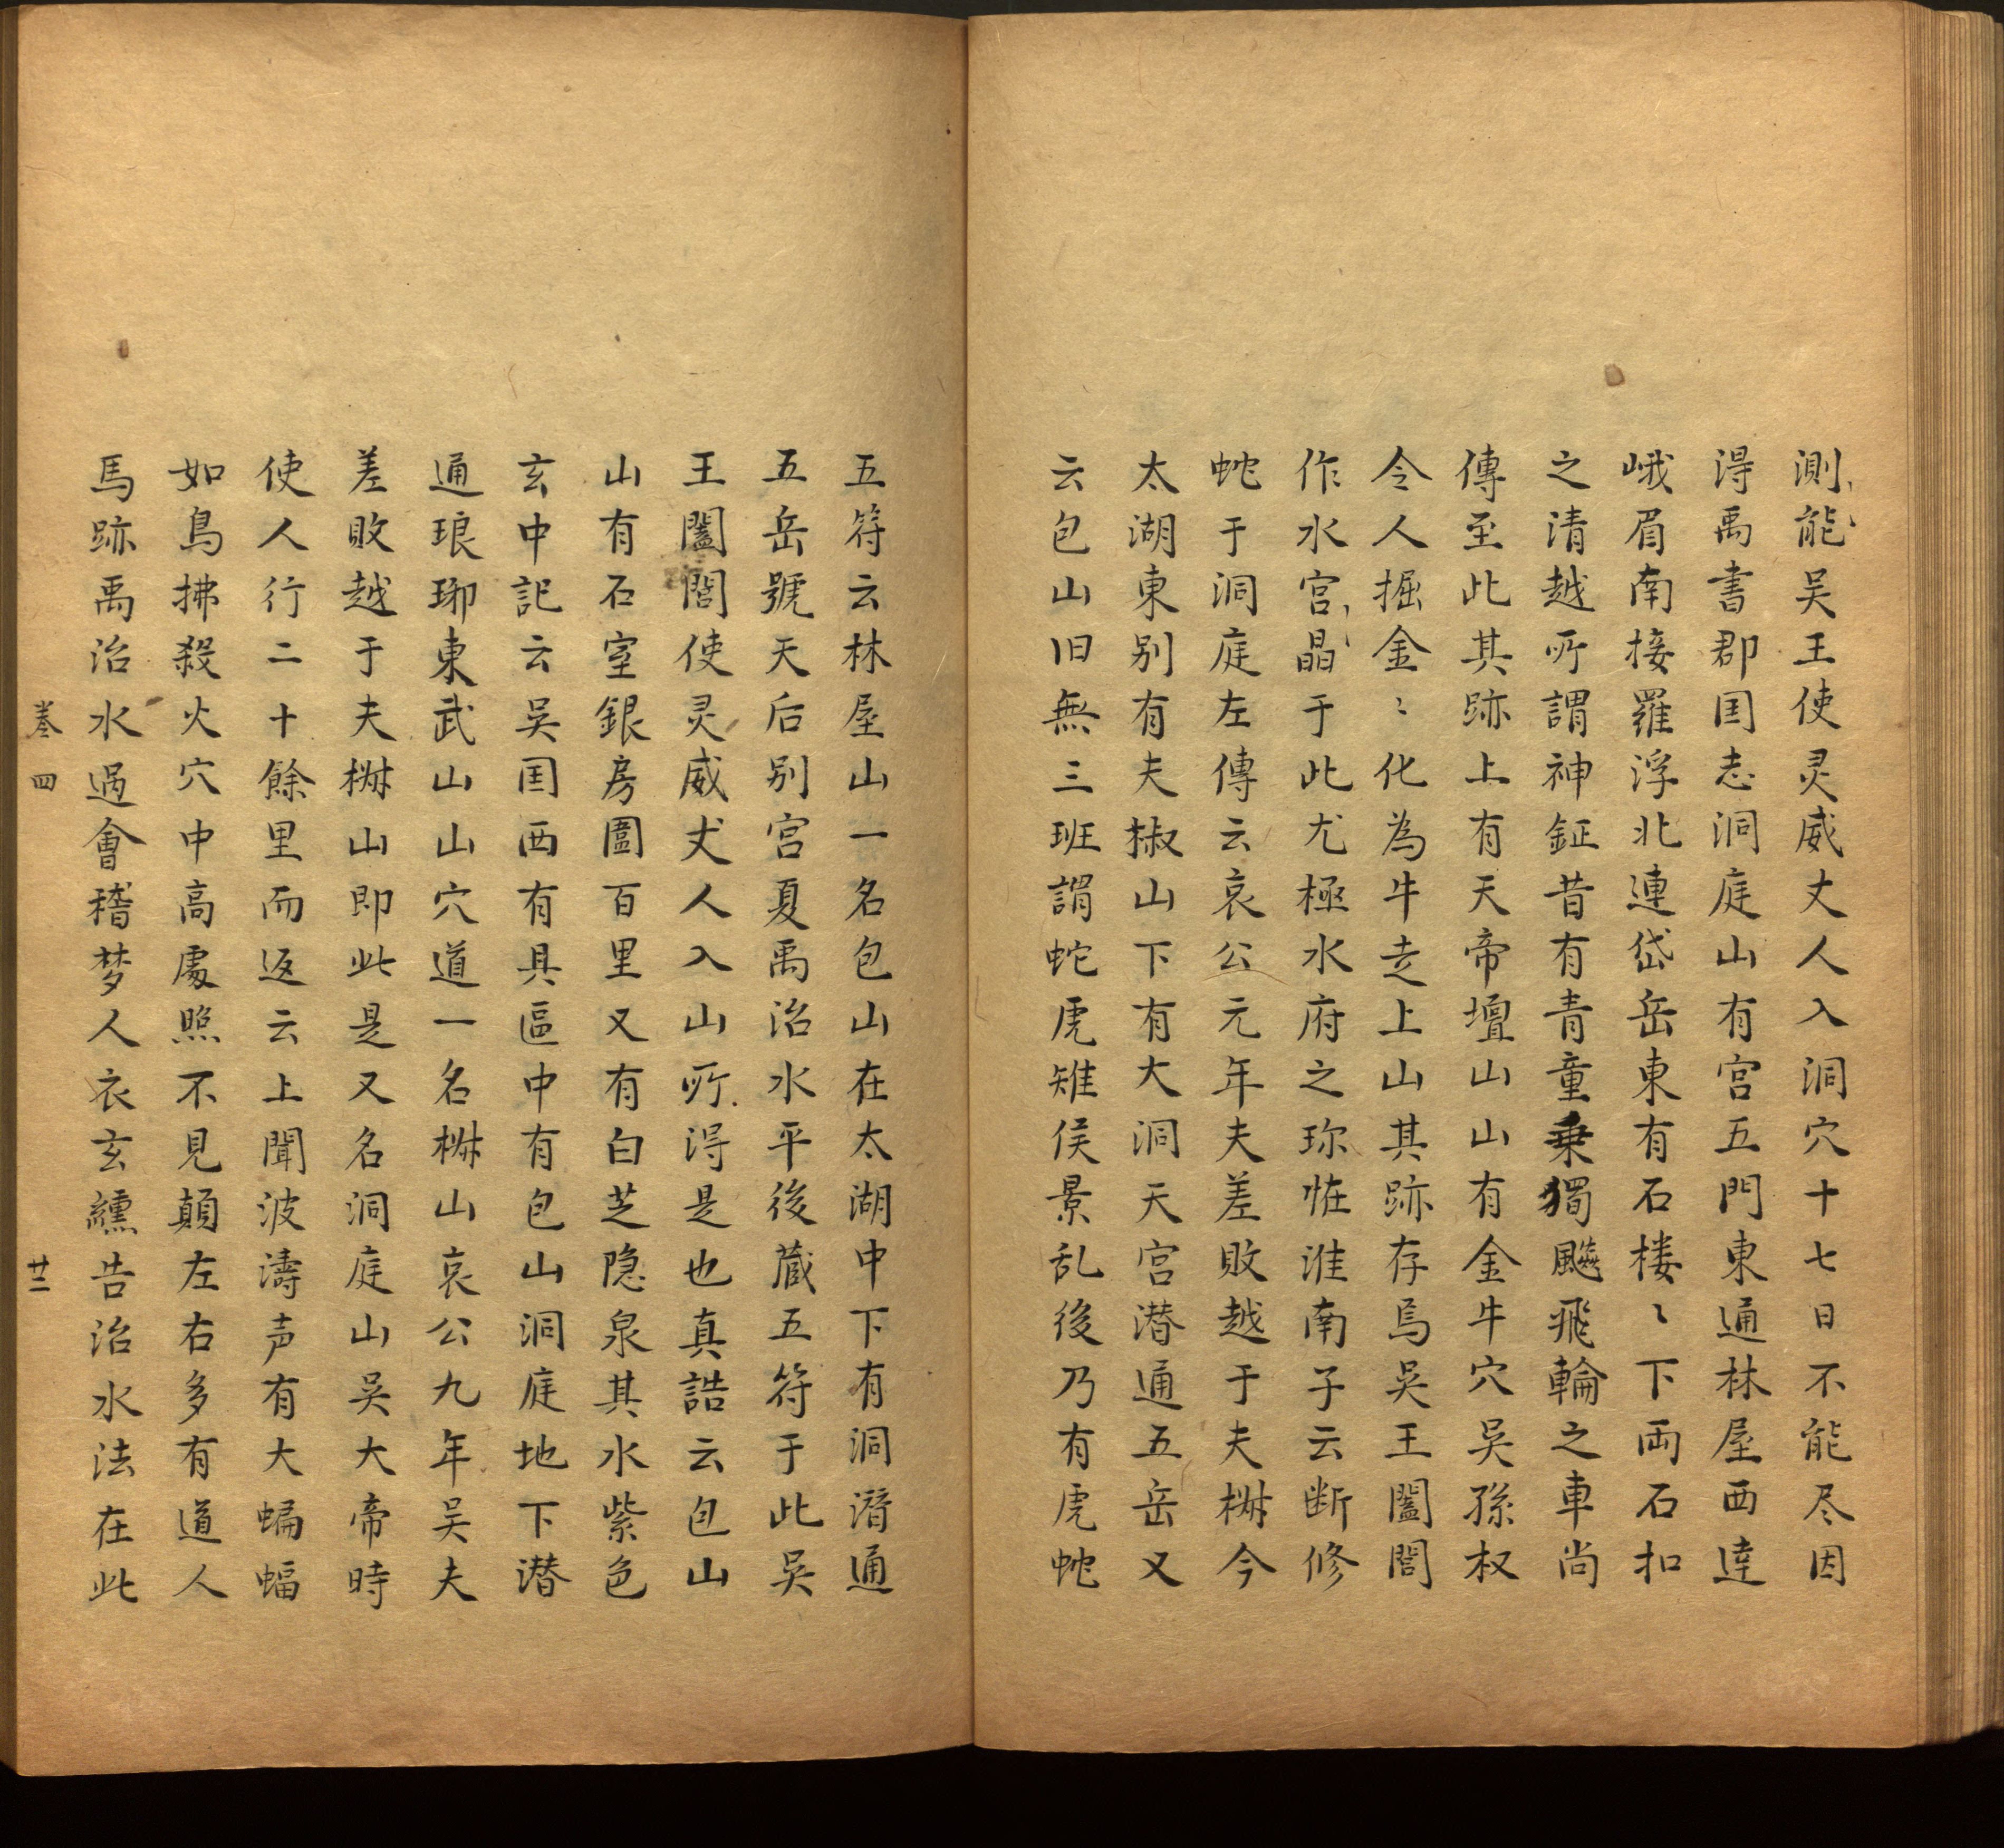 測能吴王使灵威丈人入洞穴十七日不能尽因
淂禹書郡囯志洞庭山有宫五門東通林屋西達
峨眉南接羅浮北連岱岳東有石楼〻下両石扣
之清越所謂神鉦昔有青童乗獨飈飛輪之車尚
傳至此其跡上有天帝壇山山有金牛穴吴孫权
令人掘金〻化為牛走上山其跡存焉吴王闔閭
作水宫晶于此尤極水府之珎恠淮南子云断修
蛇于洞庭左傳云哀公元年夫差敗越于夫椒今
太湖東别有夫椒山下有大洞天宫潜通五岳又
云包山旧無三班謂蛇虎雉侯景乱後乃有虎蛇
五符云林屋山一名包山在太湖中下有洞潜通
五岳號天后别宫夏禹治水平後蔵五符于此吴
王闔閭使灵威丈人入山所淂是也真誥云包山
山有石室銀房圓百里又有白芝隐泉其水紫色
玄中記云吴囯西有具區中有包山洞庭地下潜
通琅琊東武山山穴道一名椒山哀公九年吴夫
差敗越于夫椒山即此是又名洞庭山吴大帝時
使人行二十餘里而返云上聞波濤声有大蝙蝠
如鳥拂殺火穴中高處照不見顛左右多有道人
馬跡禹治水過會稽梦人衣玄纁告治水法在此
卷四 廿二